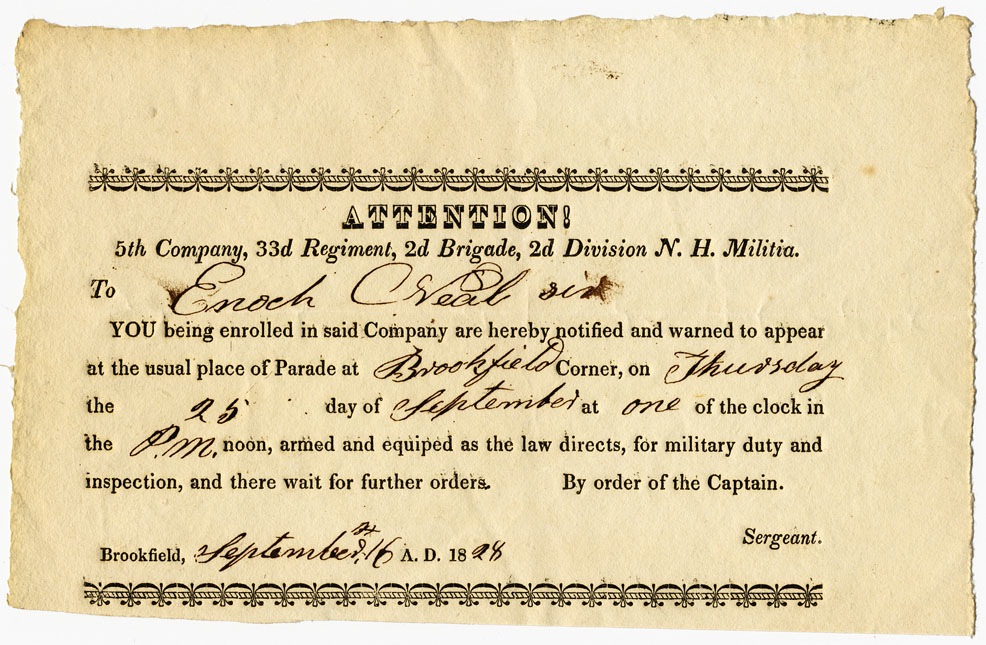 ATTENTION!
5th Company, 33d Regiment, 2d Brigade, 2d Division N. H. Militia.
To Enoch Neal sir
YOU being enrolled in said Company are hereby notified and warned to appear
at the usual place of Parade at Brookfield Corner, on Thursday
the 25 day of September at one of the clock in
the P.M. noon, armed and equiped as the law directs, for military duty and
inspection, and there wait for further orders. By order of the Captain.
Sergeant.
Brookfield, September 16 A. D. 1828